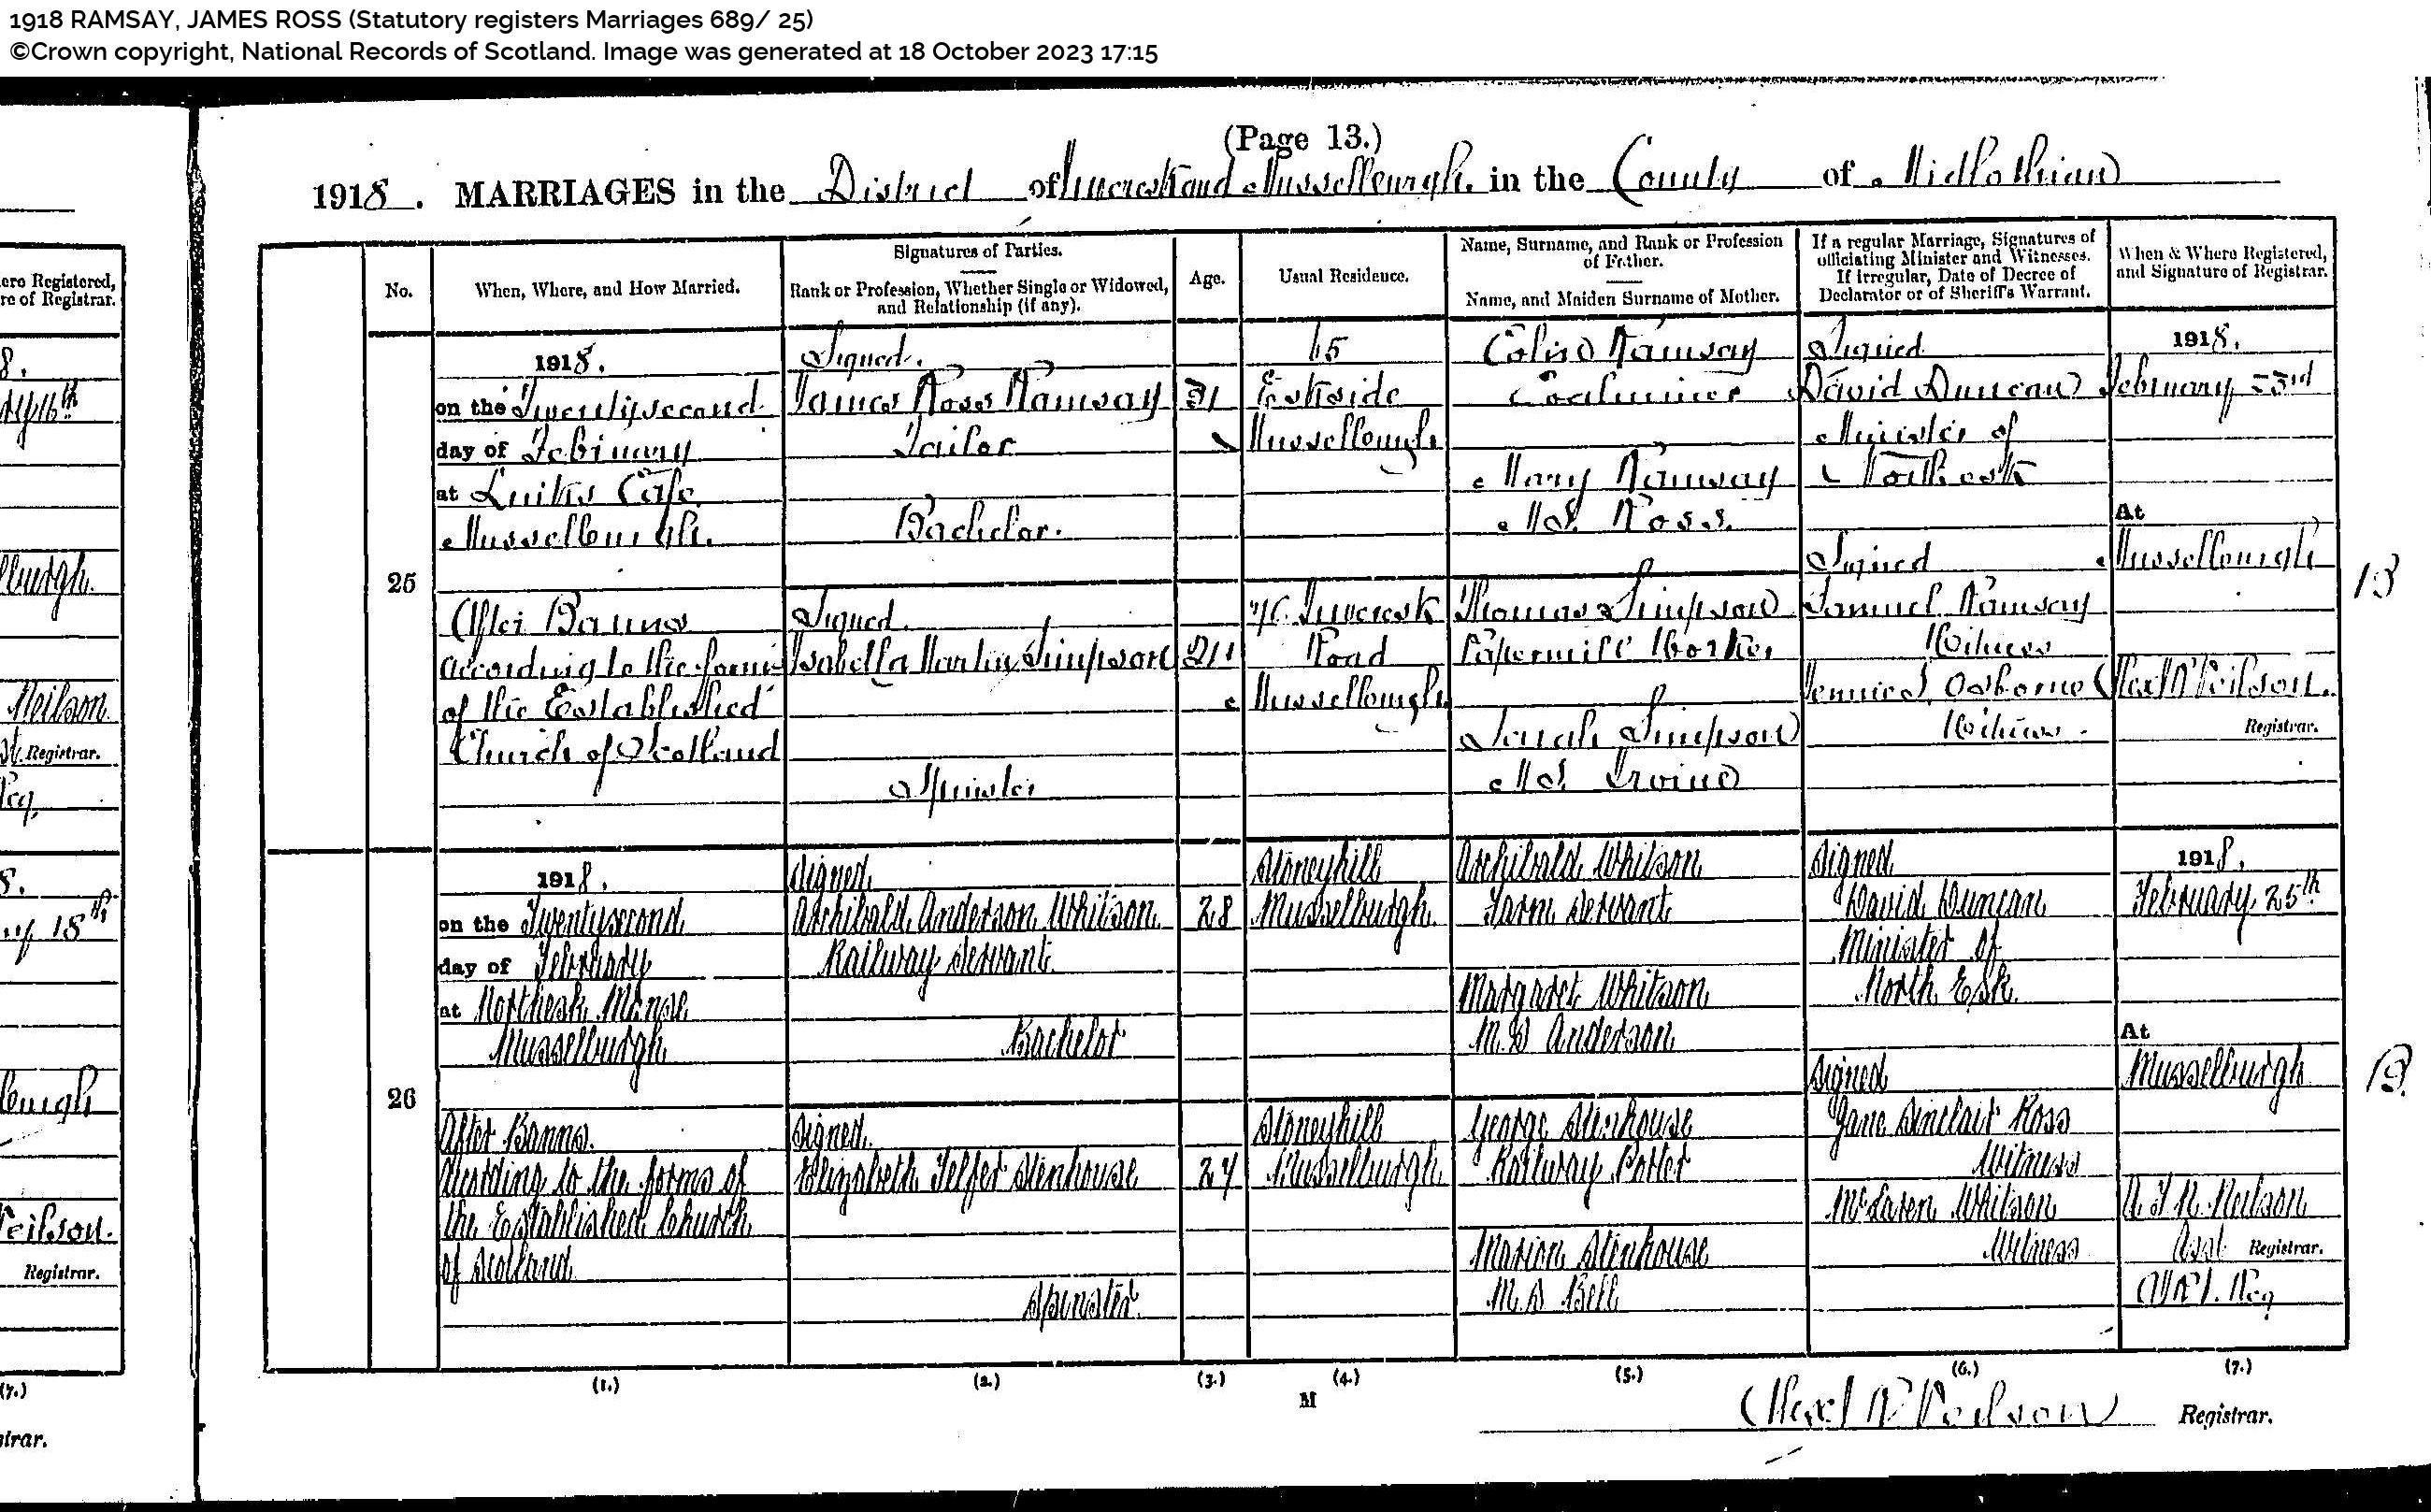 1918 RAMSAY, JAMES ROSS (Statutory registers Marriages 689/ 25)
©Crown copyright, National Records of Scotland. Image was generated at 18 October 2023 17:15
(Page 13.)
1918. MARRIAGES in the District of Inveresk and Musselburgh. in the County of Midlothian
ere Registered,
re of Registrar.
8.
16th
lburgh.
Neilson
Registrar.
Reg.
8.
18th
burgh
Neilson.
Registrar.
(7.)
strar.
No.
When, Where, and How Married.
Signatures of Parties.
Rank or Profession, Whether Single or Widowed,
and Relationship (if any).
Age.
Usual Residence.
Name, Surname, and Rank or Profession
of Father.
Name, and Maiden Surname of Mother.
If a regular Marriage, Signatures of
officiating Minister and Witnesses.
If irregular, Date of Decree of
Declarator or of Sheriff's Warrant.
When & Where Registered,
and Signature of Registrar.
25
1918.
on the Twentysecond
day of February
at Luikes Cafe
Musselburgh.
After Banns
according to the forms
of the Established
Church of Scotland
Signed.
James Ross Ramsay
Tailor
Bachelor.
Signed.
Isabella Martin Simpson
Spinster
31
Eskside
Musselburgh
Inveresk
Road
Musselburgh
Colin Ramsay
Coalminer
Mary Ramsay
M.S. Ross.
Thomas Simpson
Papermill Worker
Sarah Simpson
M.S. Irvine
Signed
David Duncan
Minister of
North esk
Signed
Samuel Ramsay
Witness
Osborne
Witness.
1918.
February 23rd
At
Musselburgh
Alex R Neilson.
Registrar.
13
26
1918.
on the Twentysecond
day of February
at Northesk Manse
Musselburgh
After Banns.
According to the forms of
the Established Church
of Scotland
Signed
Archibald Anderson Whitson
Railway Servant
Bachelor
Signed
Elizabeth Telfer Stenhouse
Spinster.
28
24
Stoneyhill
Musselburgh.
Stoneyhill
Musselburgh
Archibald Whitson
Farm Servant
Margaret Whitson
M.S Anderson
George Stenhouse
Railway Porter
Marion Stenhouse
M.S Bell
Signed
David Duncan
Minister of
North Esk.
Signed
Jane Sinclair Ross
Witness
McLaren Whitson
Witness
1918.
February 25th
At
Musselburgh
Neilson
Asst Registrar.
Reg
13.
(1.)
(2.)
(3.)
(4.)
(5.)
(6.)
(7.)
M
Alex R Neilson Registrar.